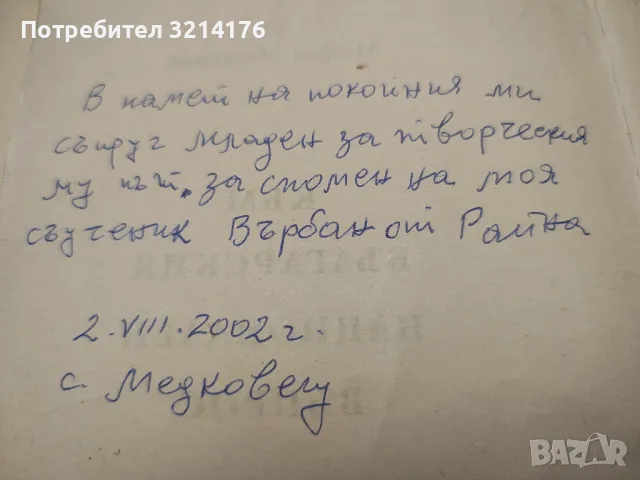 Потребител 3214176
В памет на покойния ми
съпруг Младен за творческия
му път, за спомен на моя
съученик Върбан от Райна
2.VIII.2002 г.
с. Медковец
BAZAR